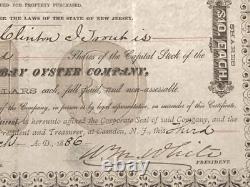 FOR PROPERTY PURCHASED.
THE LAWS OF THE STATE OF NEW JERSEY.
Clinton J Trout is
Shares of the Capital Stock of the
BAY OYSTER COMPANY,
LLARS each, full paid, and non-assessable.
of the Company, in person or by legal representative, on surrender of this Certificate.
affixed the Corporate Seal of said Company,
President and Treasurer, at Camden, N. J., this third
A.D., 1886
White
PRESIDENT.
SHARES
$10 EACH